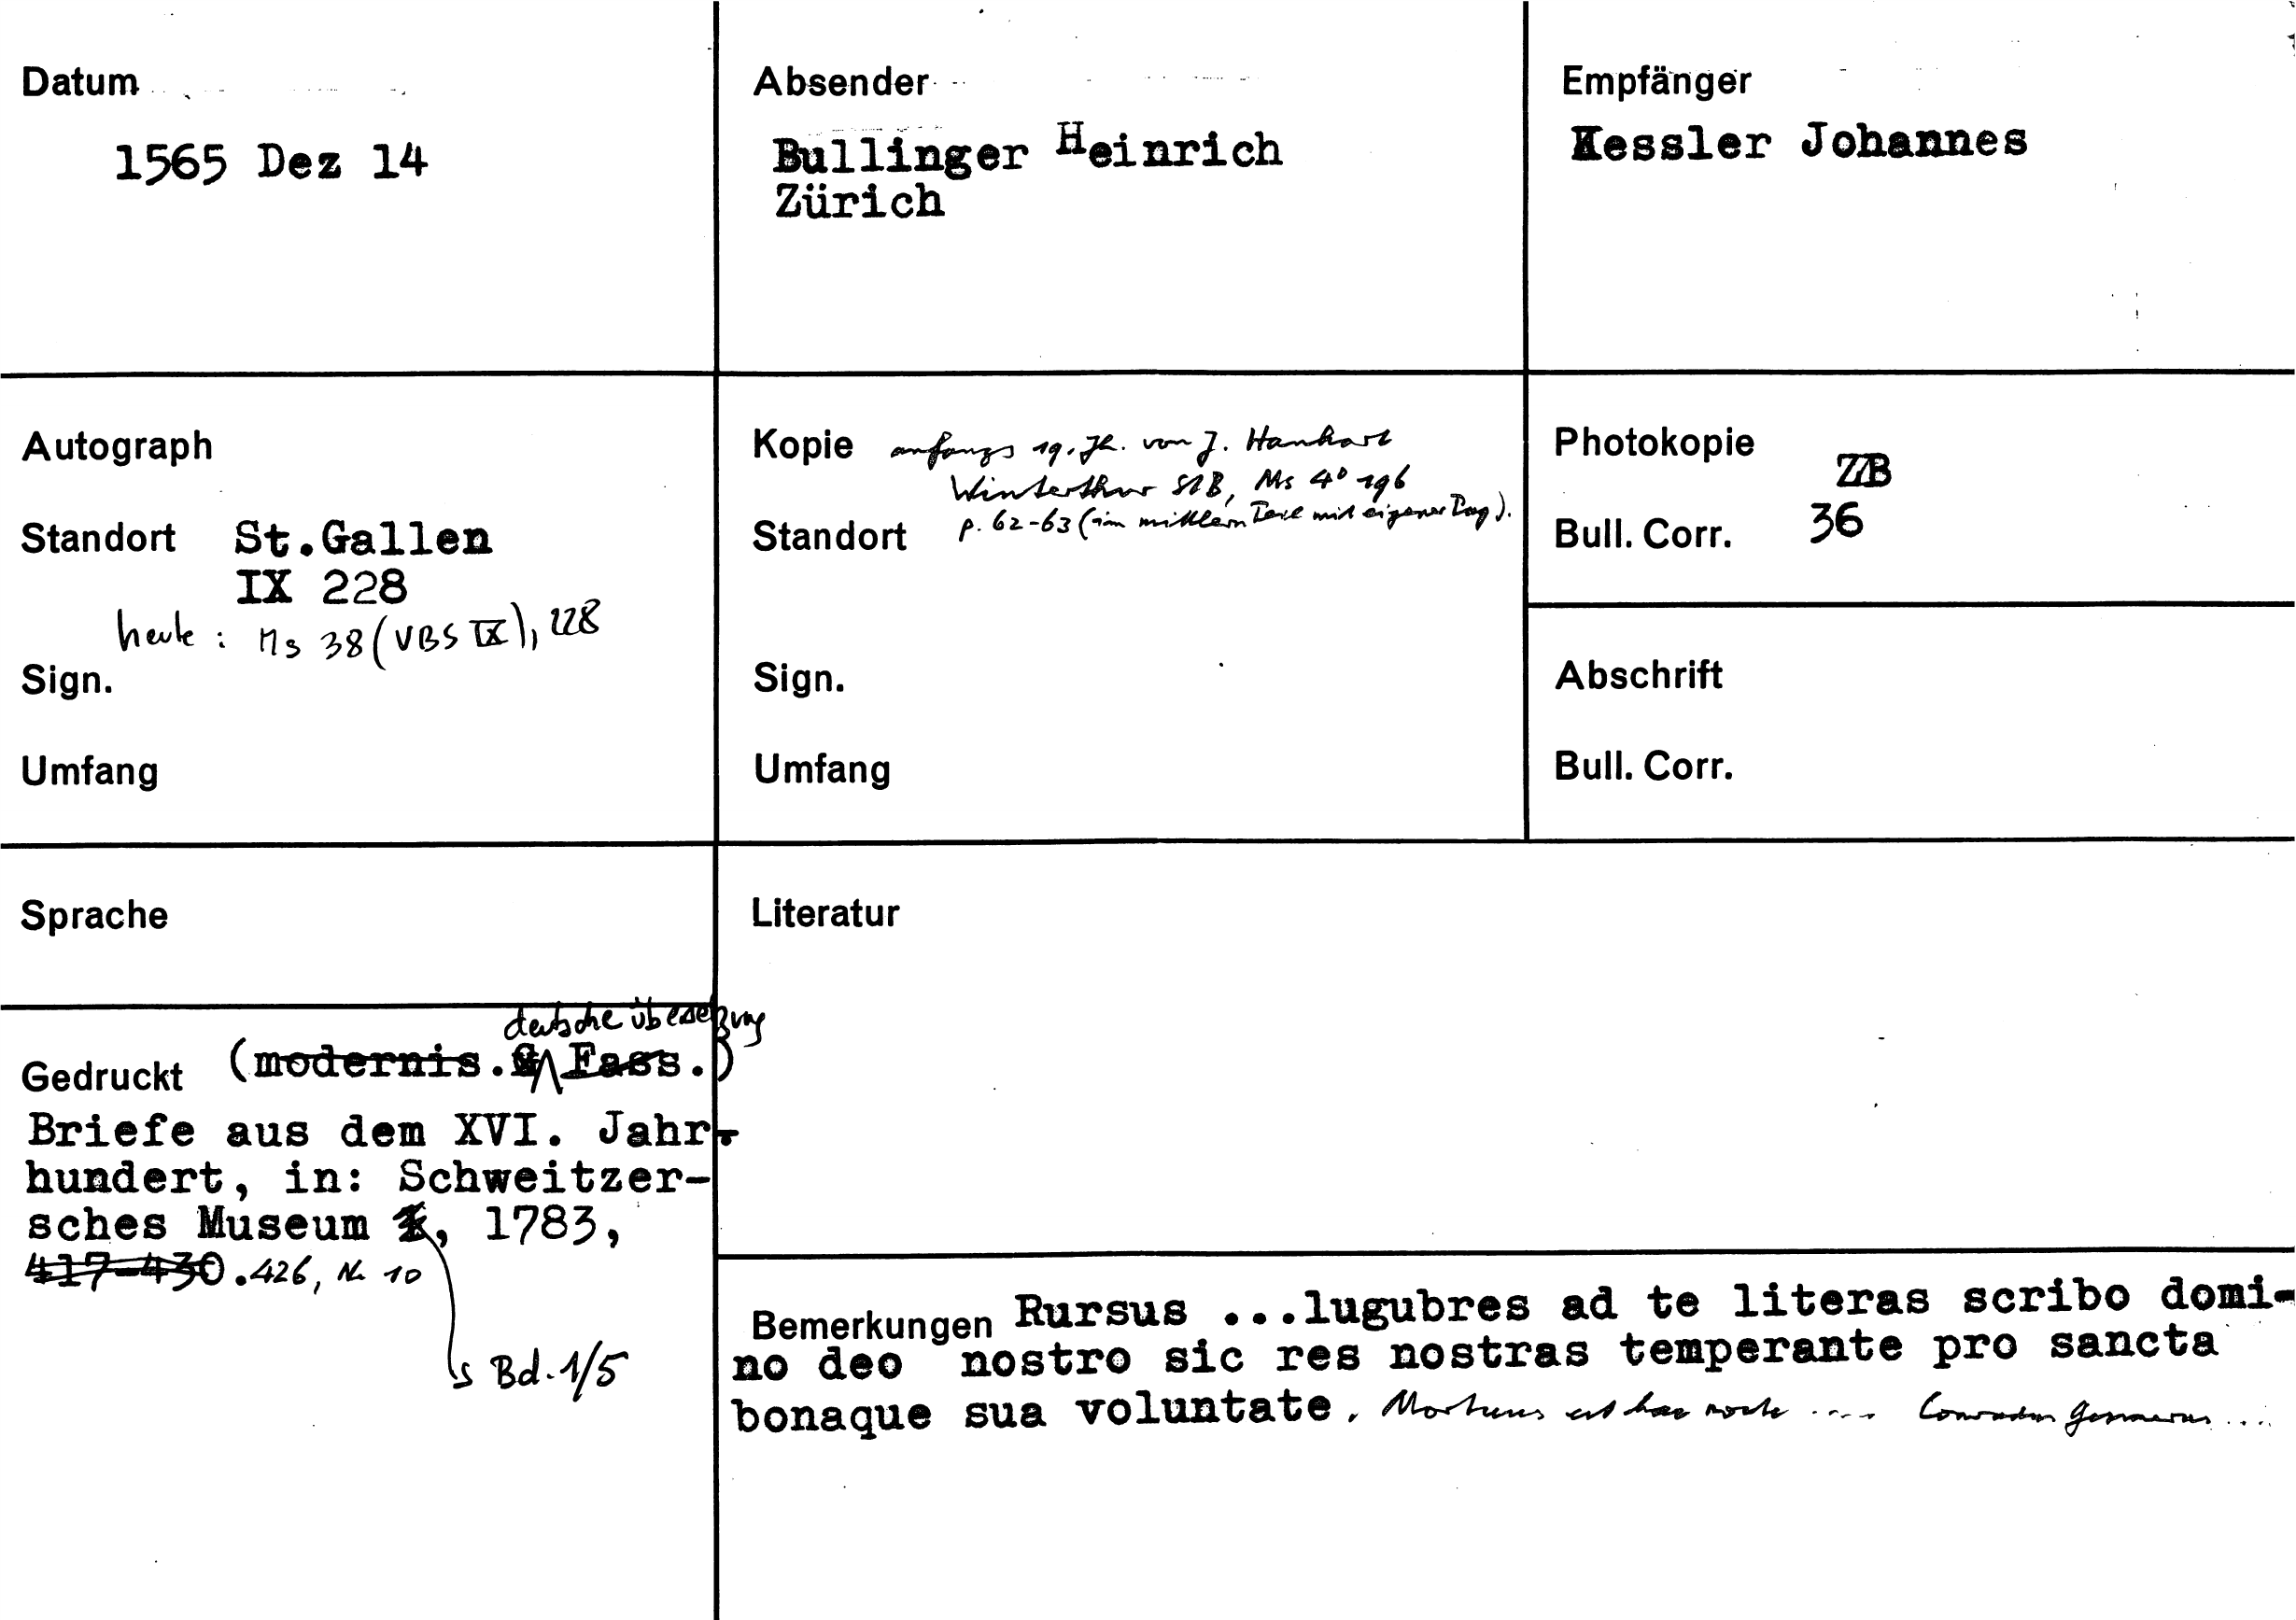 Datum
1565 Dez 14
Absender
Bullinger Heinrich
Zürich
Empfänger
Kessler Johannes
Autograph
Standort St.Gallen
IX 228
heute : Ms 38 (VBS IX), 228
Sign.
Umfang
Kopie anfangs 19. Jh. von J. Hanhart
Winterthur StB, Ms 4° 196
Standort p. 62-63 (im mittlern Teil mit eigener Pag).
Sign.
Umfang
Photokopie
ZB
Bull. Corr. 36
Abschrift
Bull. Corr.
Sprache
Literatur
deutsche Übersetzung
Gedruckt (modernis. Fass.)
Briefe aus dem XVI. Jahr-
hundert, in: Schweitzer-
sches Museum , 1783,
417-430. 426, Nr. 10
Bd. 1/5
Bemerkungen Rursus ...lugubres ad te literas scribo domi-
no deo nostro sic res nostras temperante pro sancta
bonaque sua voluntate. Mortuus est hac nocte .... Conradus Gesnerus ...